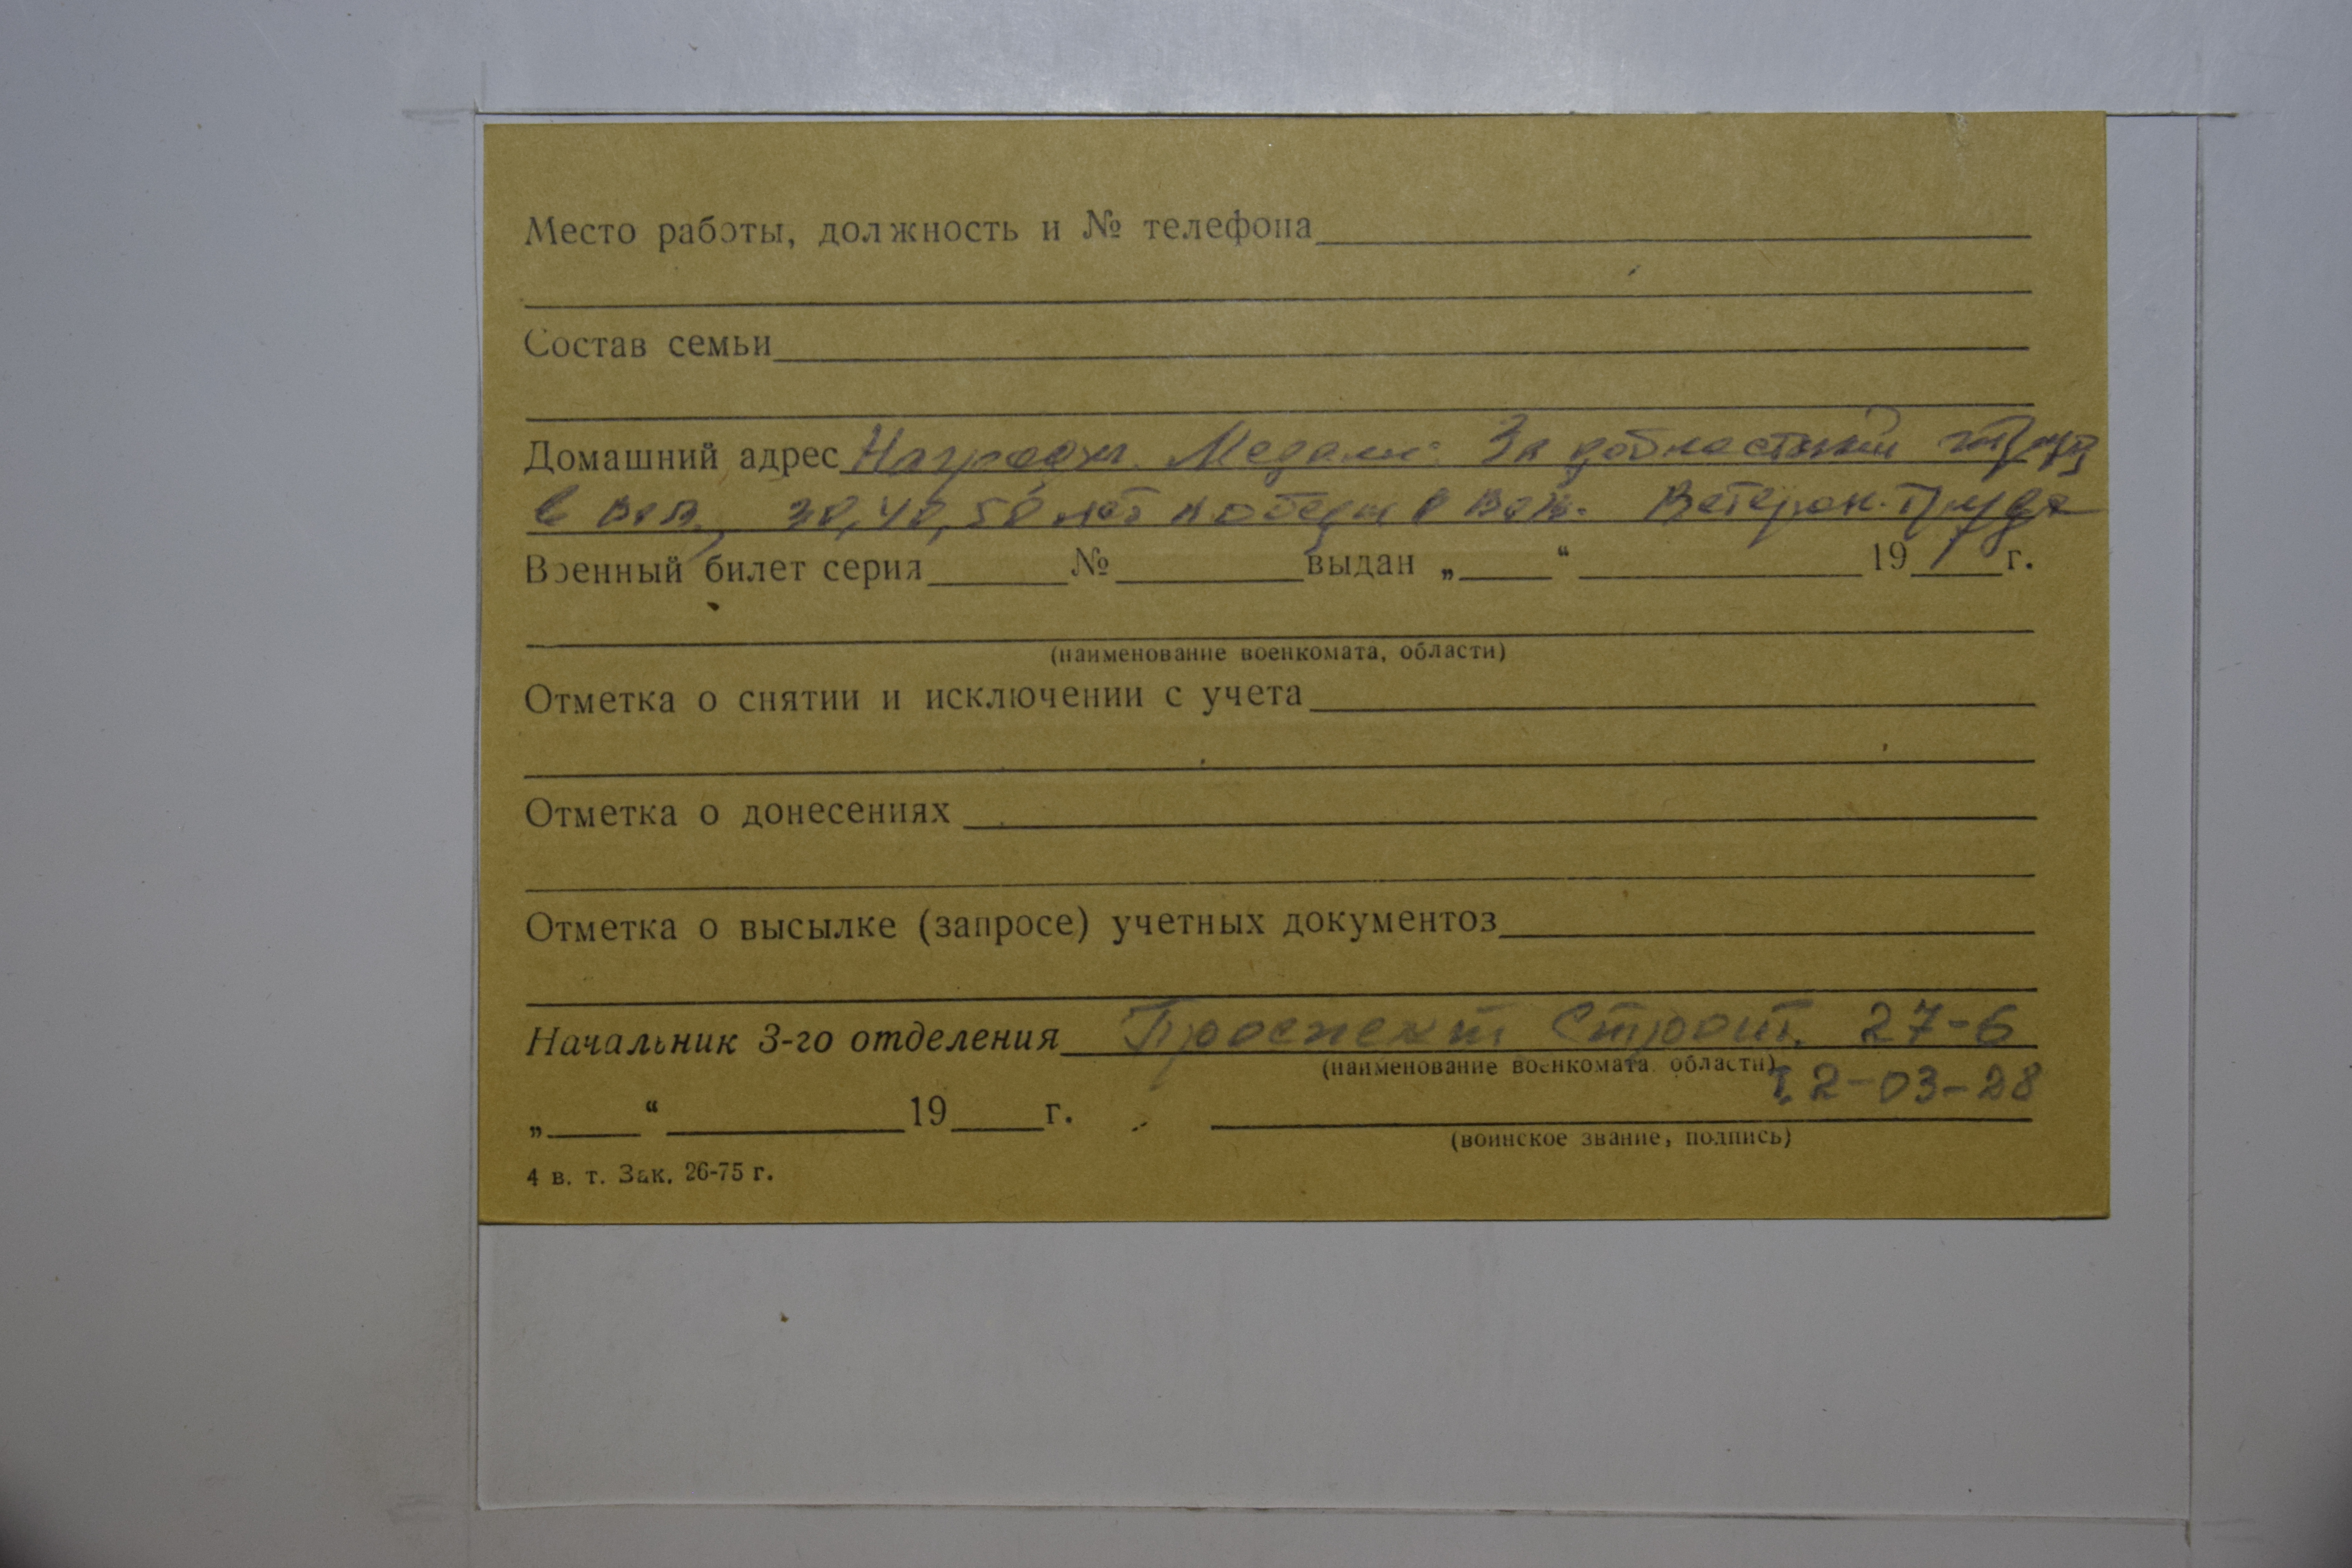 Место работы, должность и № телефона
Состав семьи
Домашний адрес Награжд. Медали: За доблестный труд
в вов, 30, 40, 50 лет победы в вов. Ветеран труда
Военный билет серия № выдан „ “ 19 г.
(наименование военкомата, области)
Отметка о снятии и исключении с учета
Отметка о донесениях
Отметка о высылке (запросе) учетных документов
Начальник 3-го отделения Проспект Строит. 27-6
(наименование военкомата, области)
т. 2-03-28
„ “ 19 г.
(воинское звание, подпись)
4 в. т. Зак. 26-75 г.